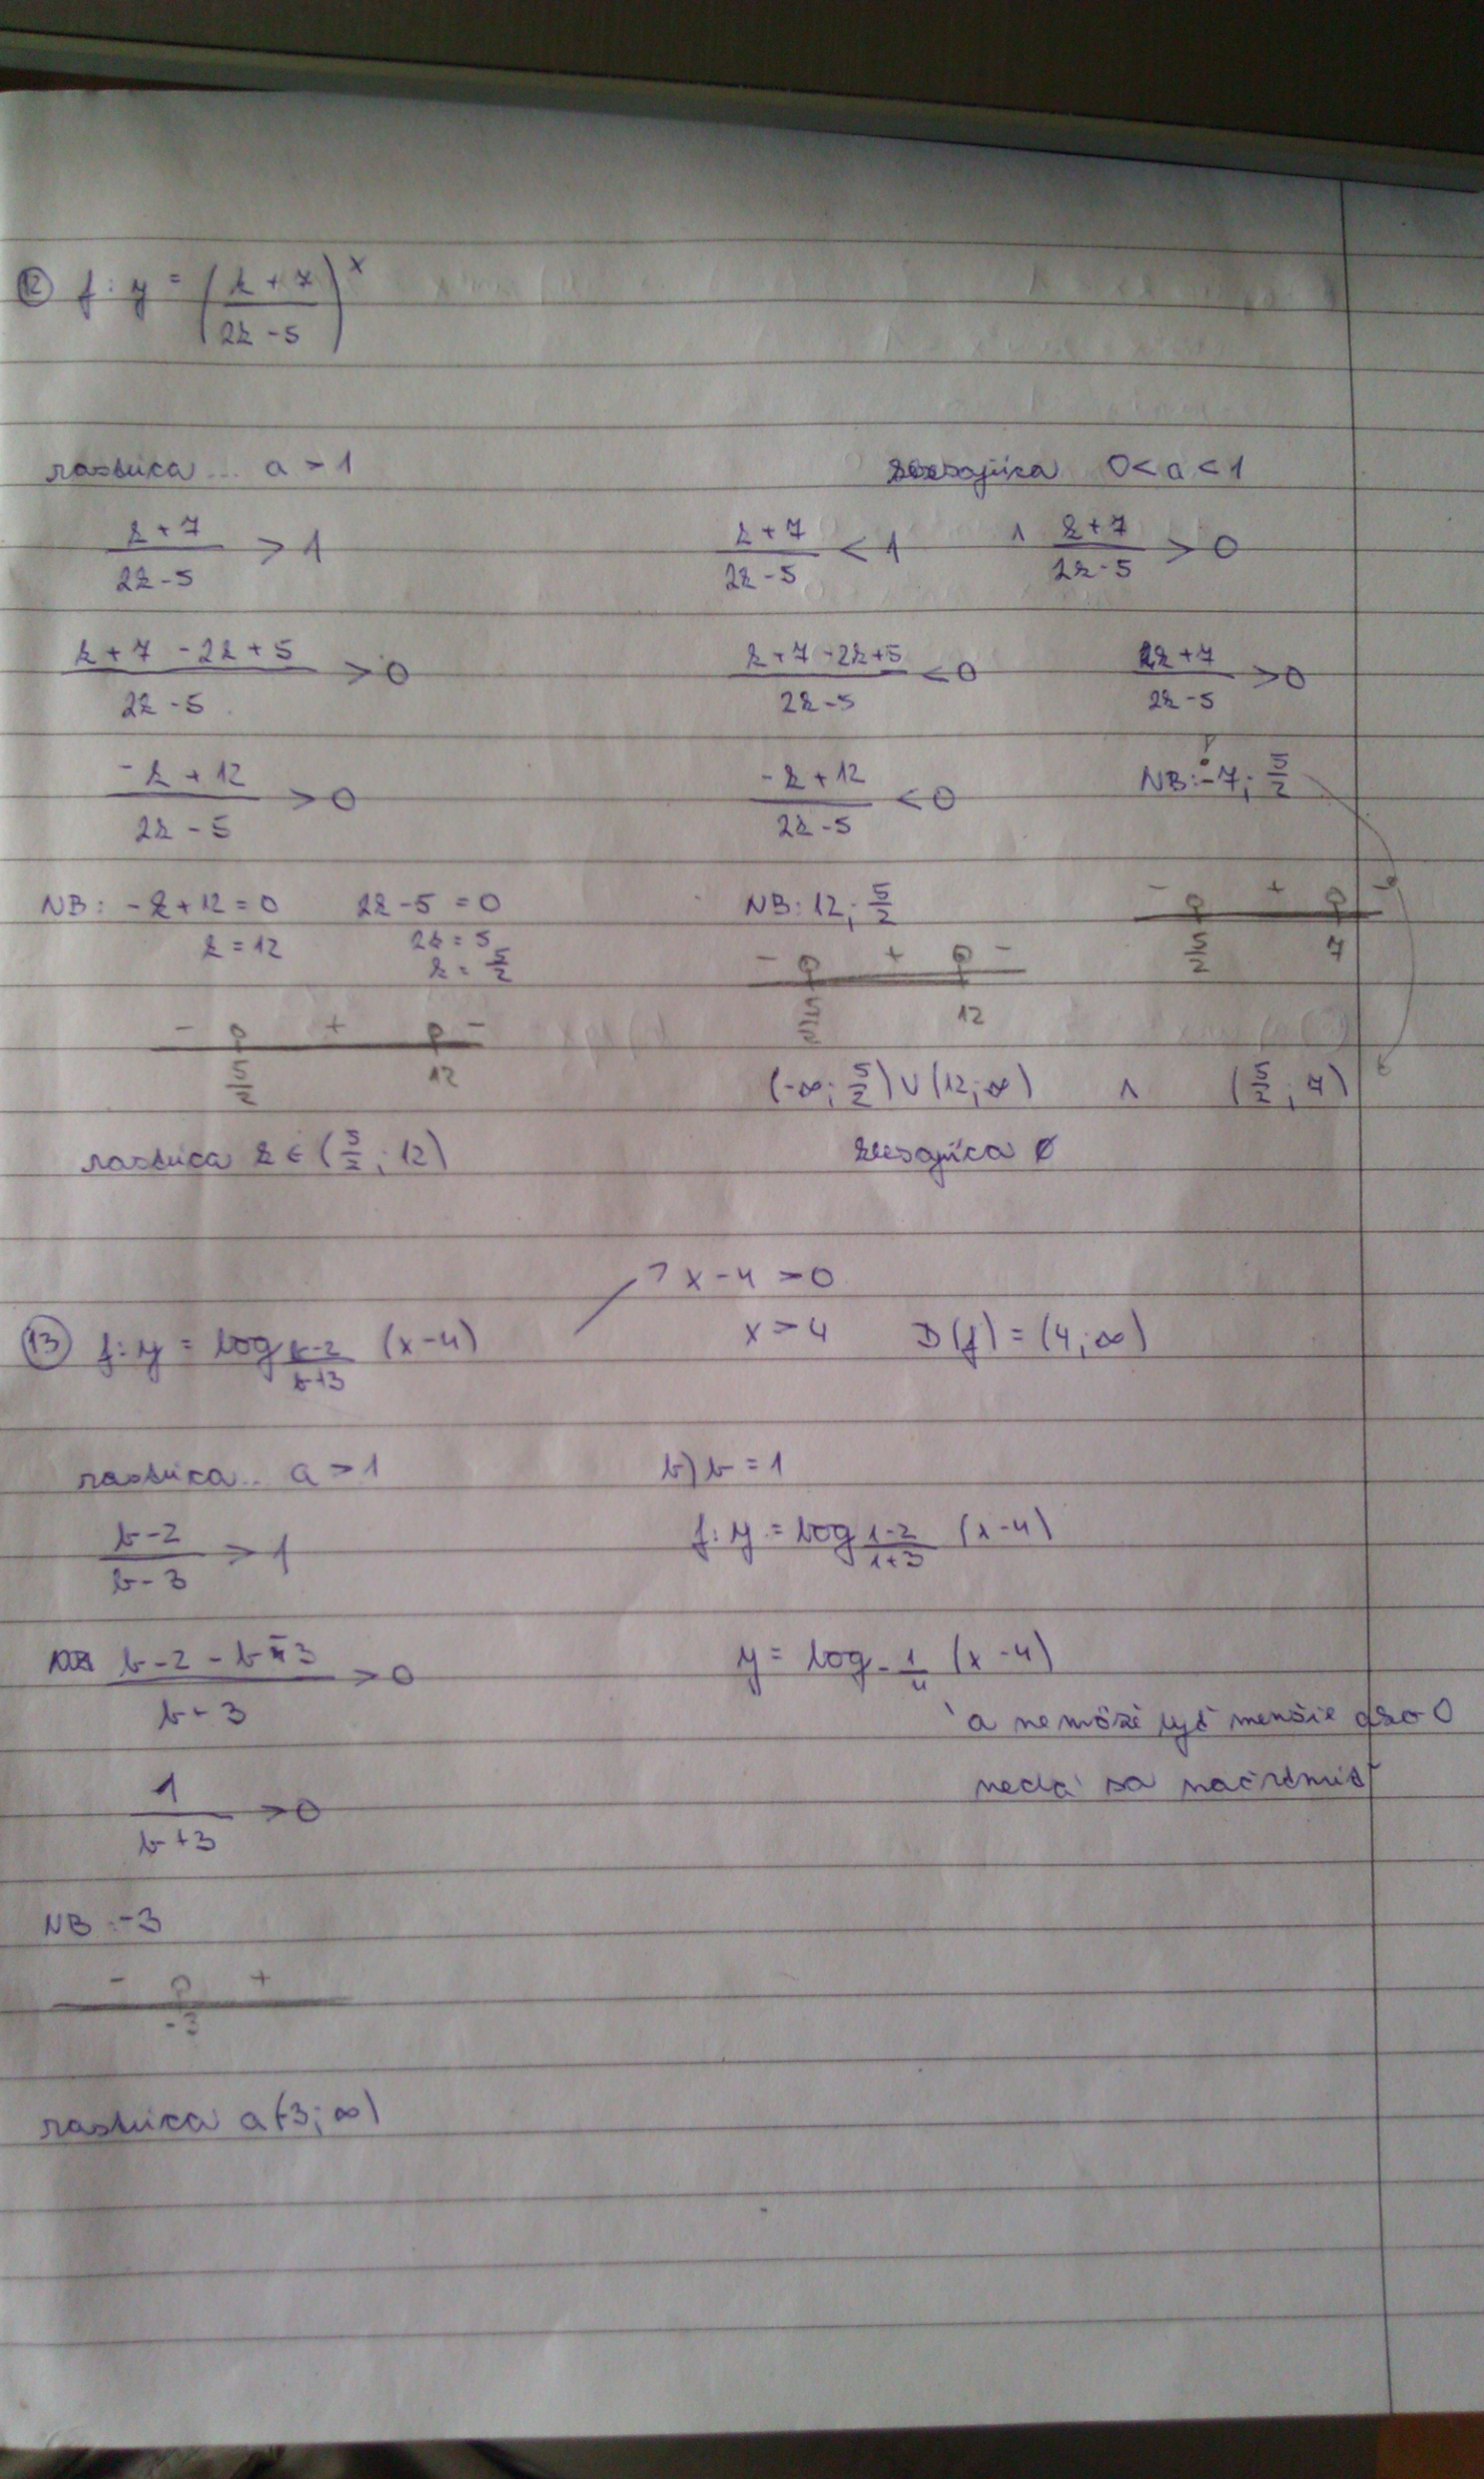 12 f: y = ((k + 7)/(2k - 5))^x
rastúca ... a > 1
(k + 7)/(2k - 5) > 1
(k + 7 - 2k + 5)/(2k - 5) > 0
(-k + 12)/(2k - 5) > 0
NB: -k + 12 = 0 2k - 5 = 0
k = 12 2k = 5
k = 5/2
- + -
5/2 12
rastúca k ∈ (5/2; 12)
klesajúca 0 < a < 1
(k + 7)/(2k - 5) < 1 ∧ (k + 7)/(2k - 5) > 0
(k + 7 - 2k + 5)/(2k - 5) < 0 (k + 7)/(2k - 5) > 0
(-k + 12)/(2k - 5) < 0 NB: -7; 5/2
NB: 12; 5/2 - + -
- + - 5/2 7
5/2 12
(-∞; 5/2) ∪ (12; ∞) ∧ (5/2; 7)
klesajúca ∅
13 f: y = log (b-2)/(b+3) (x-4)
x - 4 > 0
x > 4 D(f) = (4; ∞)
rastúca .. a > 1
(b-2)/(b-3) > 1
(b-2 - b - 3)/(b - 3) > 0
1/(b+3) > 0
NB: -3
- +
-3
rastúca a (-3; ∞)
b) b = 1
f: y = log (1-2)/(1+3) (x-4)
y = log -1/4 (x-4)
a nemôže byť menšie ako 0
nedá sa načrtnúť